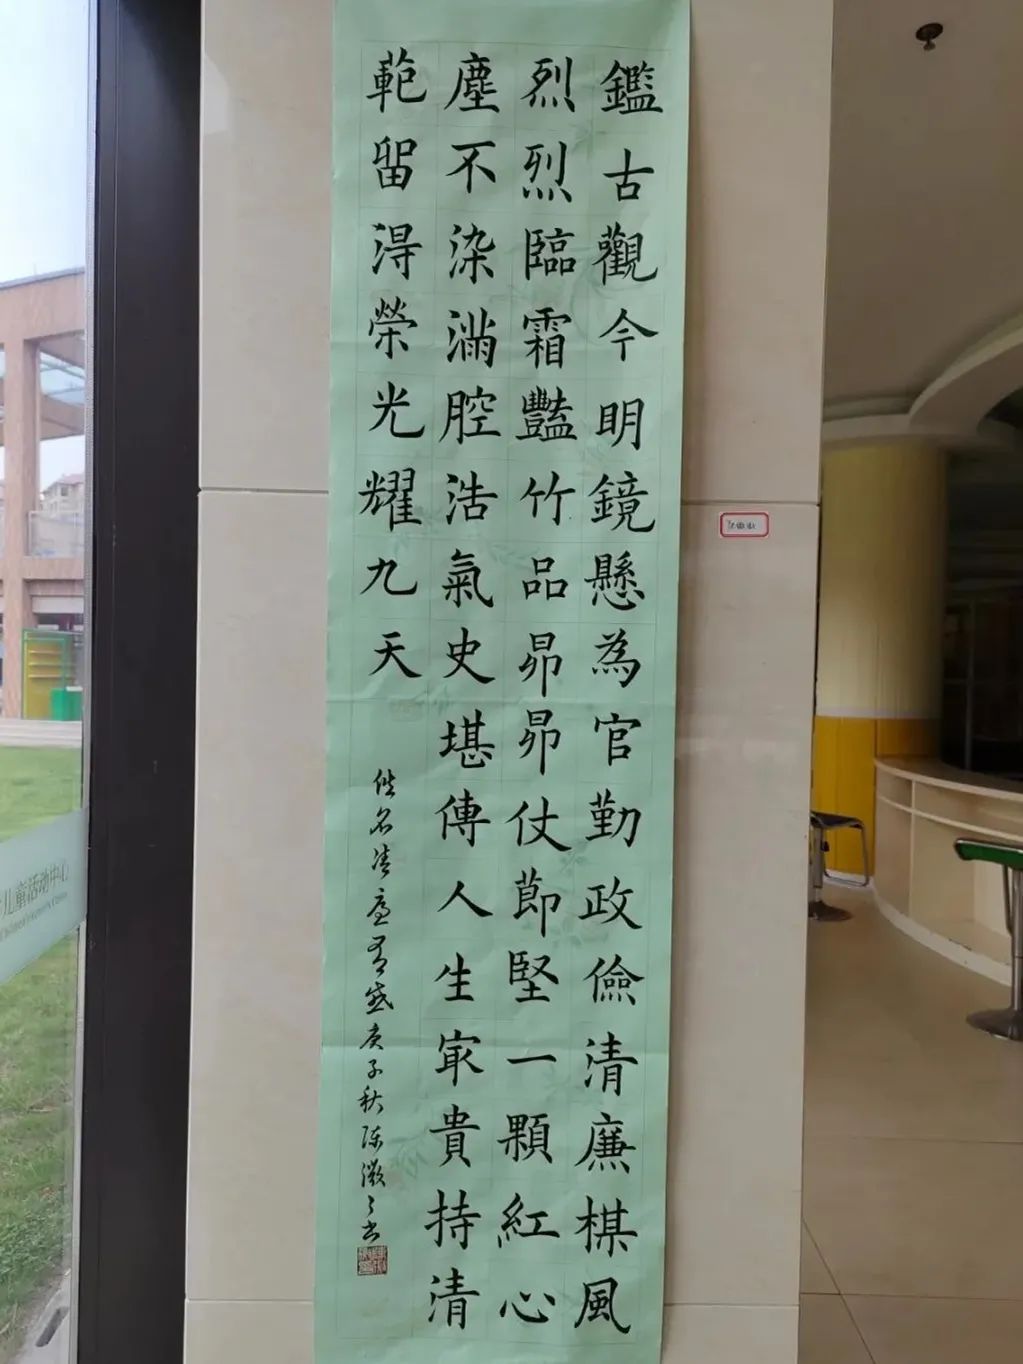 鑑古觀今明鏡懸為官勤政儉清廉楳風
烈烈臨霜豔竹品昂昂仗節堅一顆紅心
塵不染滿腔浩氣史堪傳人生冣貴持清
範留淂榮光耀九天
佚名清廉有感庚子秋陈潋之书
儿童活动中心